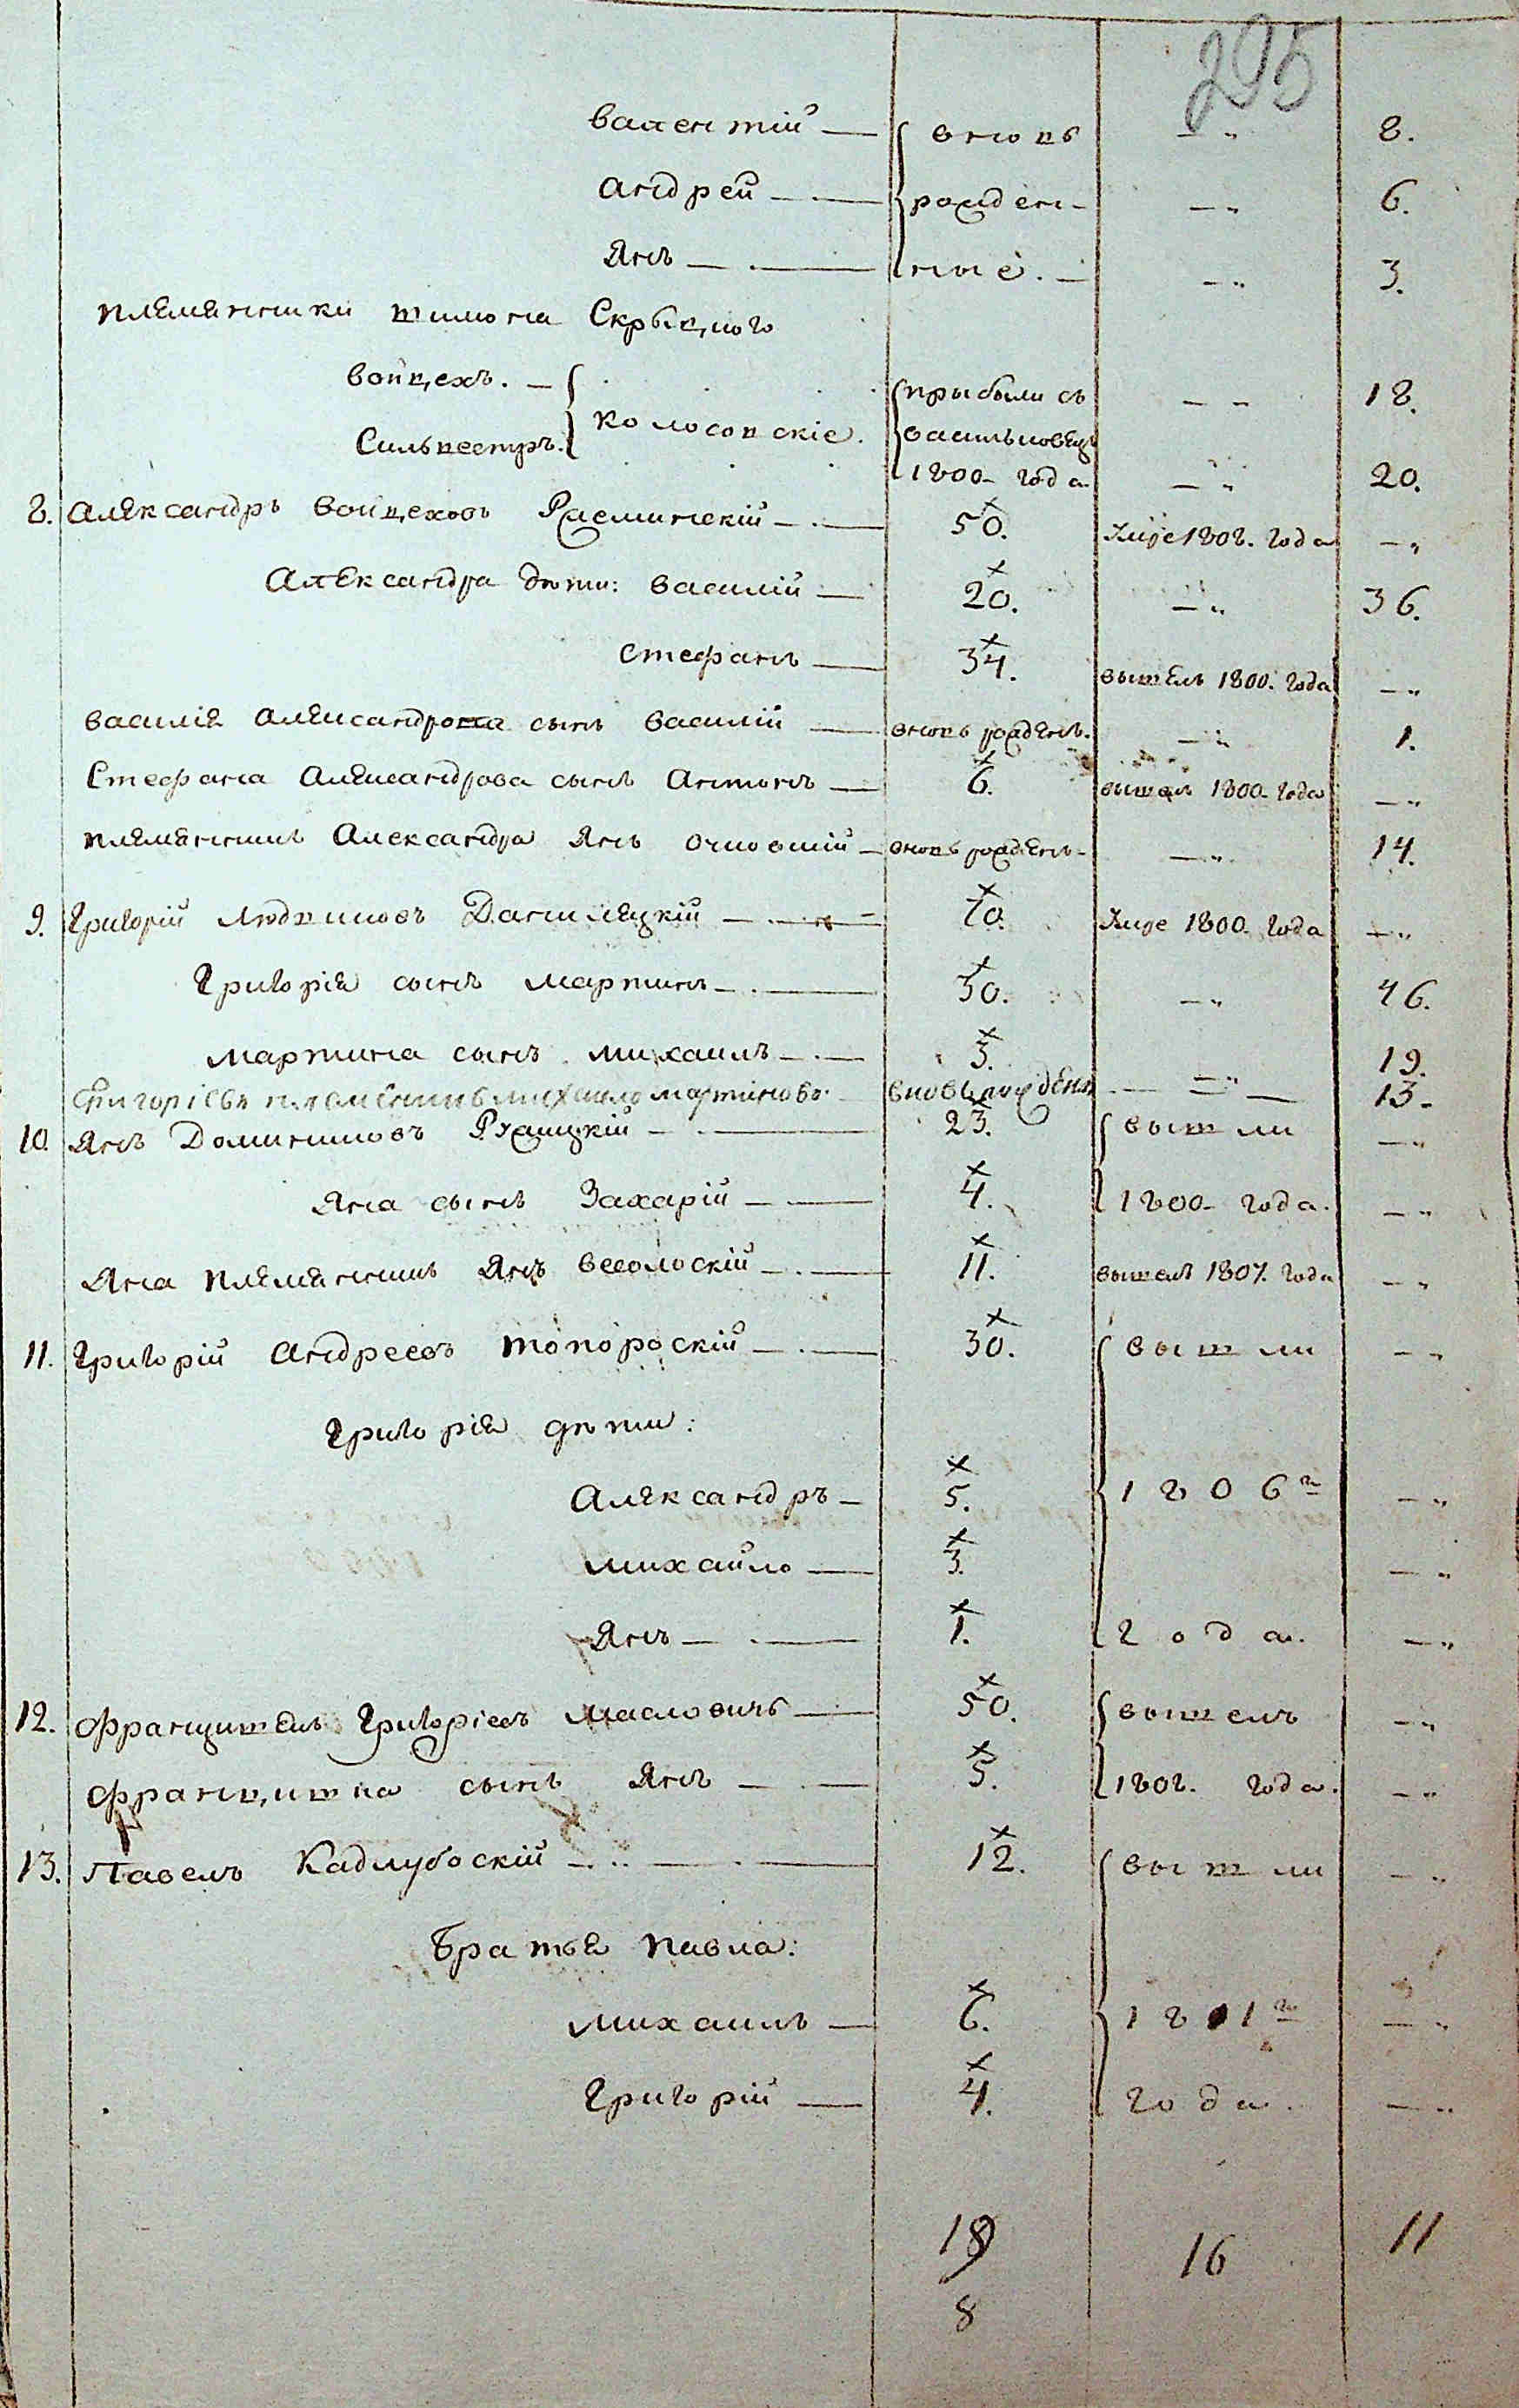 295
Валентій — вновь — „ 8.
Андрей — рожден- — „ 6.
Янъ — ные. — „ 3.
племянники Шимона Скрыцкого
Войцехъ. — прыбыли съ — „ 18.
Сильвестръ. Колосовскіе.
1800 года — „ 20.
8. Александръ Войцеховъ 50. 1808. года — „
Александра дѣти: Василій — 20. — „ 36.
Стефанъ — 34. вышелъ 1800. года — „
Василія Александрова сынъ Василій — вновь рожденъ. — „ 1.
Стефана Александрова сынъ Антонъ — 6. вышелъ 1800 года — „
племянникъ Александра Янъ — вновь рожденъ — „ 14.
9. Григорій 70. 1800 года — „
Григорія сынъ Мартинъ — 30. — „ 46.
Мартина сынъ Михаилъ — 3. — „ 19.
Григоріевъ племенникъ Михайло Мартиновъ. вновь рожденъ — 13.
10. Янъ Доминиковъ 23. вышли — „
Яна сынъ Захарій — 4. 1800 года. — „
Яна племянникъ Янъ Весолоскій — 11. вышелъ 1807. года — „
11. Григорій Андреевъ Топороскій — 30. вышли — „
Григорія дѣти:
Александръ — 5. 1806го — „
Михайло — 3. — „
Янъ — 1. года. — „
12. Францишекъ Григоріевъ Масловичъ — 50. вышелъ — „
Францишка сынъ Янъ — 5. 1808. года. — „
13. Павелъ Кадлубоскій — 12. вышли — „
Братья Павла:
Михаилъ — 6. 1801го — „
Григорій — 4. года. — „
16 11
8